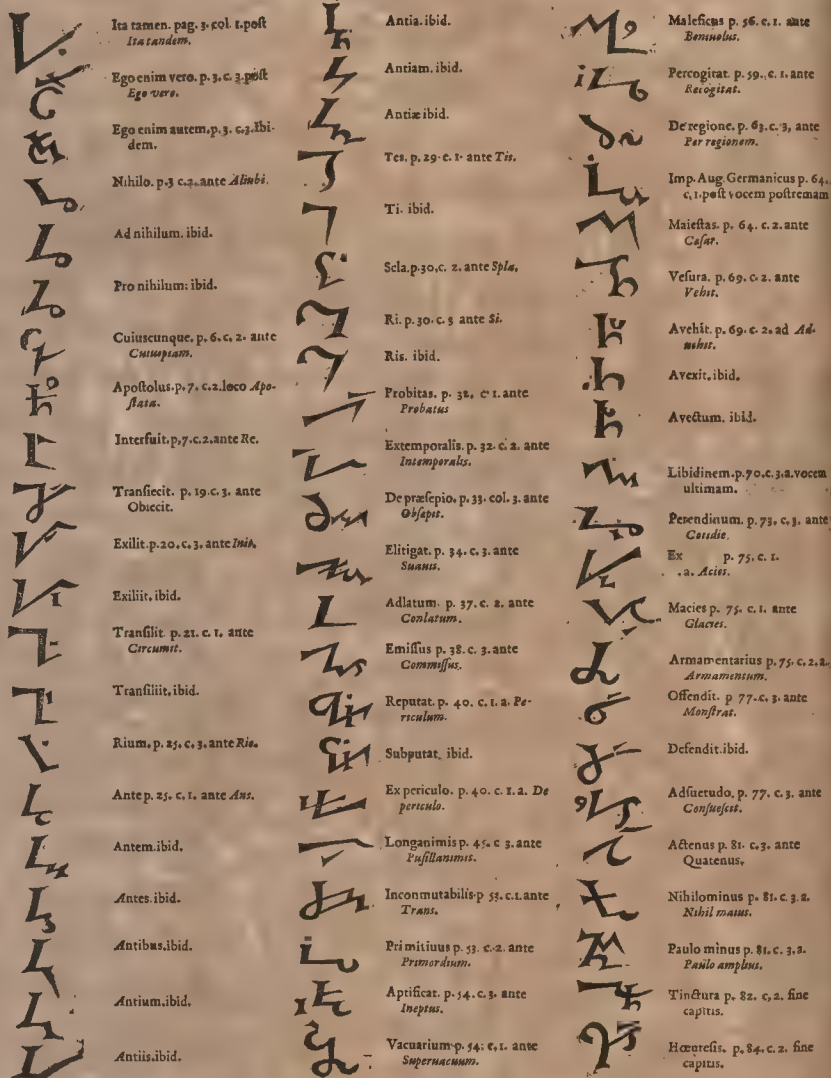 Ita tamen. pag. 3. col. 1. poſt
Ita tandem.
Ego enim vero. p. 3. c. 3. poſt
Ego vero.
Ego enim autem. p. 3. c. 3. Ibi-
dem.
Nihilo. p. 3 c. 2. ante Aliubi.
Ad nihilum. ibid.
Pro nihilum: ibid.
Cuiuscunque. p. 6. c. 2. ante
Cuiuspiam.
Apoſtolus. p. 7. c. 2. loco Apo-
ſtata.
Interfuit. p. 7. c. 2. ante Re.
Tranſiecit. p. 19. c. 3. ante
Obiecit.
Exilit. p. 20. c. 3. ante Init.
Exiliit. ibid.
Tranſilit. p. 21. c. 1. ante
Circumit.
Tranſiliit. ibid.
Rium. p. 25. c. 3. ante Rio.
Ante p. 25. c. 1. ante Ans.
Antem. ibid.
Antes. ibid.
Antibus. ibid.
Antium. ibid.
Antiis. ibid.
Antia. ibid.
Antiam. ibid.
Antiæ ibid.
Tes. p. 29. c. 1. ante Tis.
Ti. ibid.
Scla. p. 30. c. 2. ante Spla.
Ri. p. 30. c. 3 ante Si.
Ris. ibid.
Probitas. p. 32. c. 1. ante
Probatus
Extemporalis. p. 32. c. 2. ante
Intemporalis.
De præſepio. p. 33. col. 3. ante
Obſapit.
Elitigat. p. 34. c. 3. ante
Suauis.
Adlatum. p. 37. c. 2. ante
Conlatum.
Emiſſus p. 38. c. 3. ante
Commiſſus.
Reputat. p. 40. c. 1. a. Pe-
riculum.
Subputat. ibid.
Ex periculo. p. 40. c. 1. a. De
periculo.
Longanimis p. 45. c 3. ante
Puſillanimis.
Inconmutabilis. p 53. c. 1. ante
Trans.
Primitiuus p. 53. c. 2. ante
Primordium.
Aptificat. p. 54. c. 3. ante
Ineptus.
Vacuarium. p. 54: c. 1. ante
Superuacuum.
Maleficus p. 56. c. 1. ante
Beniuolus.
Percogitat. p. 59. c. 1. ante
Recogitat.
De regione. p. 63. c. 3, ante
Per regionem.
Imp. Aug. Germanicus p. 64.
c. 1. poſt vocem poſtremam
Maieſtas. p. 64. c. 2. ante
Caſar.
Veſura. p. 69. c. 2. ante
Vehit.
Avehit. p. 69. c. 2. ad Ad-
uehit.
Avexit. ibid.
Avectum. ibid.
Libidinem. p. 70. c. 3. a. vocem
ultimam.
Perendinum. p. 73. c. 3. ante
Cotidie.
Ex p. 75. c. 1.
.a. Acies.
Macies p. 75. c. 1. ante
Glacies.
Armamentarius p. 75. c. 2. a.
Armamentum.
Offendit. p 77. c. 3. ante
Monſtrat.
Defendit. ibid.
Adſuetudo. p. 77. c. 3. ante
Conſueſcit.
Actenus p. 81. c. 3. ante
Quatenus.
Nihilominus p. 81. c. 3. a.
Nihil maius.
Paulo minus p. 81. c. 3. a.
Paulo amplius.
Tinctura p. 82. c, 2. fine
capitis.
Hœreſis. p. 84. c. 2. fine
capitis.